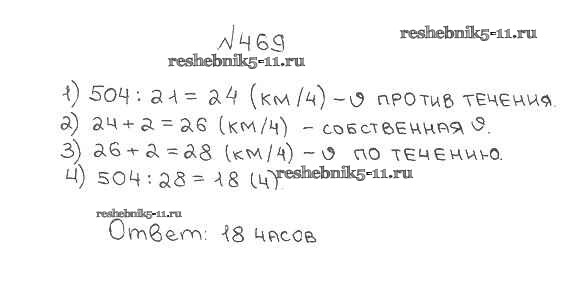 №469
reshebnik5-11.ru
reshebnik5-11.ru
1) 504 : 21 = 24 (км/ч) – υ против течения.
2) 24 + 2 = 26 (км/ч) – собственная υ.
3) 26 + 2 = 28 (км/ч) – υ по течению.
4) 504 : 28 = 18 (ч)
reshebnik5-11.ru
reshebnik5-11.ru
Ответ: 18 часов